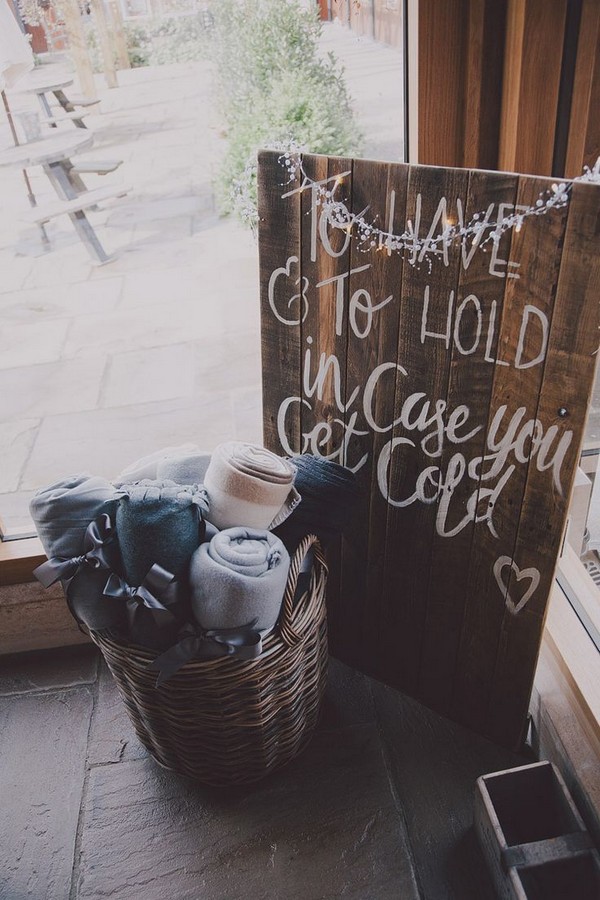 To HAVE
& To HOLD
in Case you
Get Cold